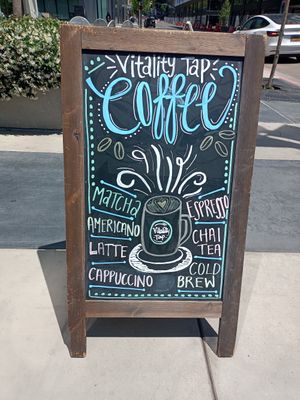 Vitality Tap
Coffee
MATCHA
AMERICANO
LATTE
CAPPUCCINO
Vitality
Tap
ESPRESSO
CHAI
TEA
COLD
BREW